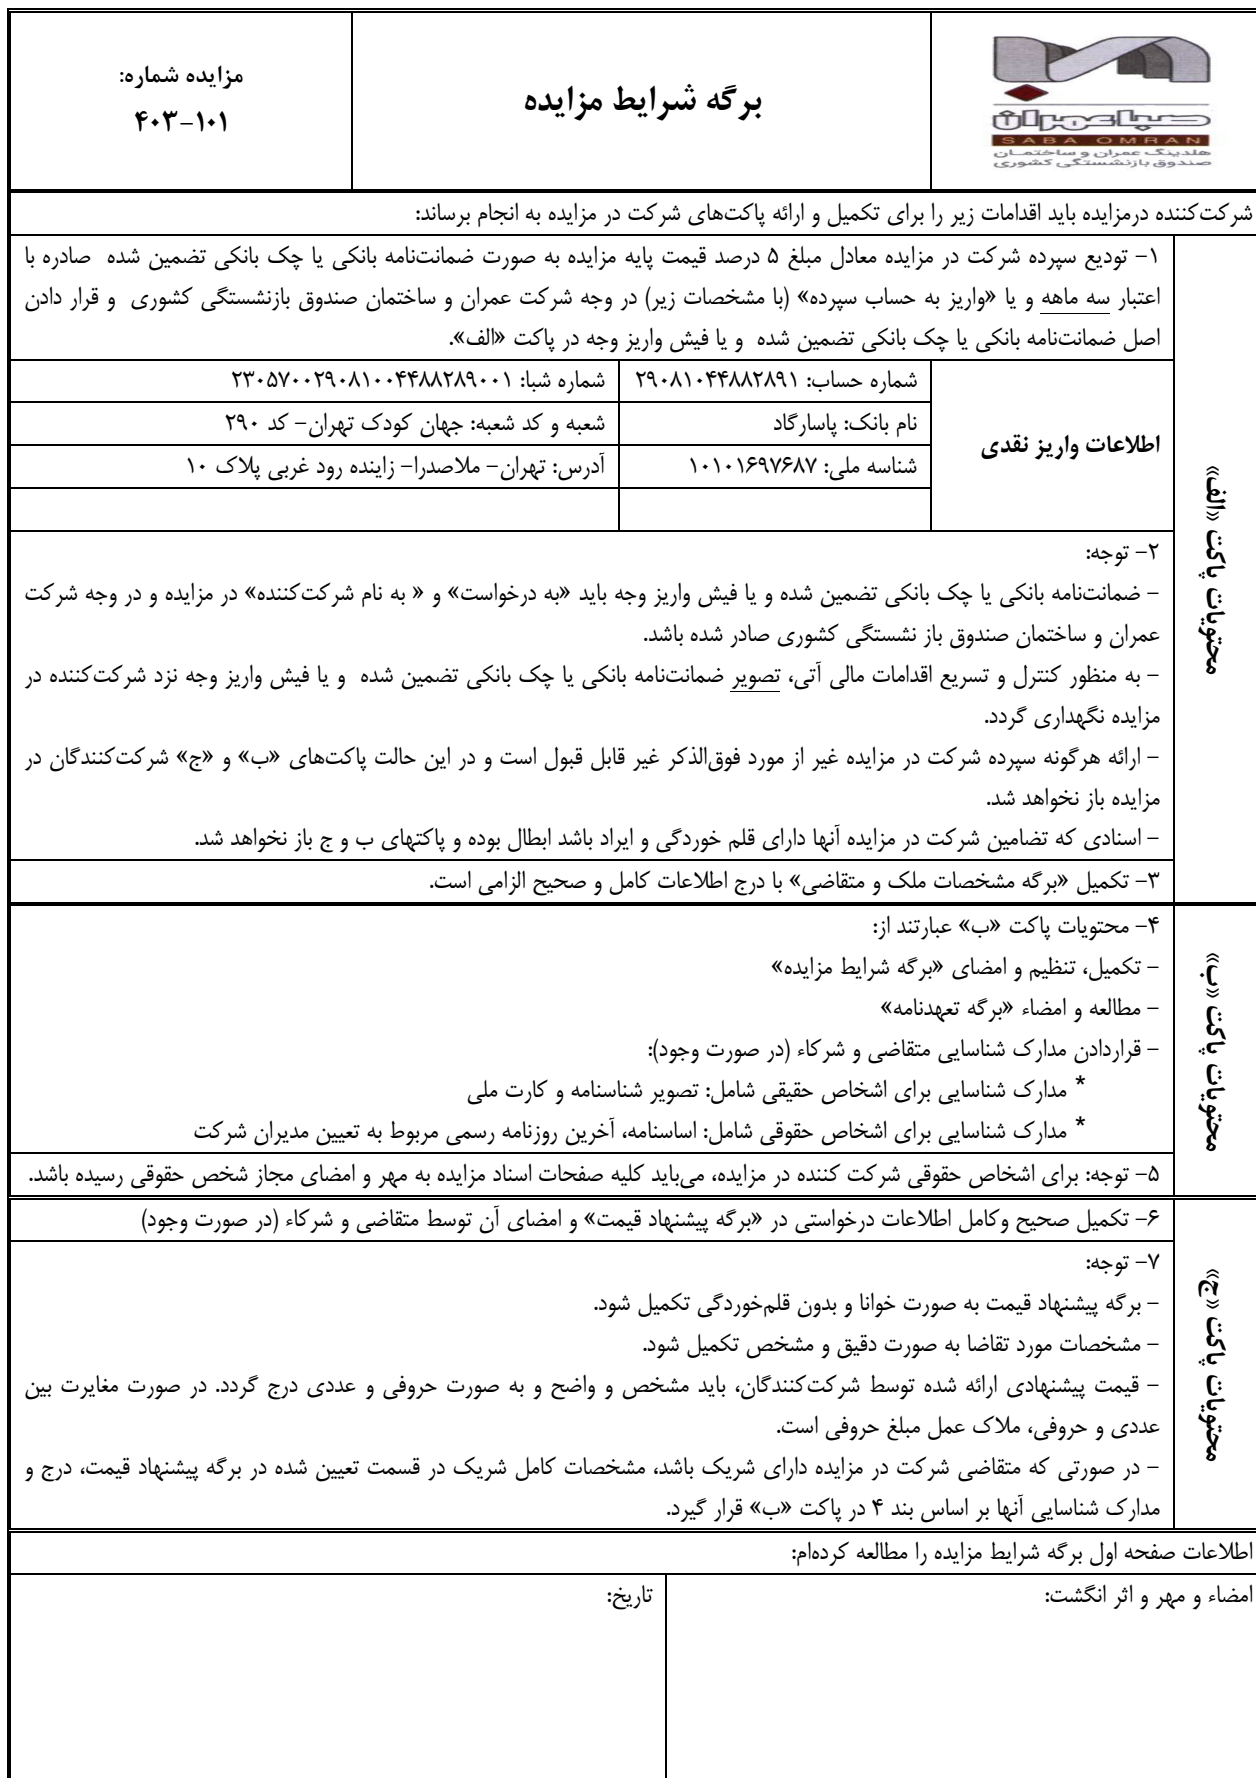 صباعمران
SABA OMRAN
هلدینگ عمران و ساختمان
صندوق بازنشستگی کشوری
برگه شرایط مزایده
مزایده شماره:
۴۰۳-۱۰۱
شرکت‌کننده درمزایده باید اقدامات زیر را برای تکمیل و ارائه پاکت‌های شرکت در مزایده به انجام برساند:
محتویات پاکت «الف»
۱- تودیع سپرده شرکت در مزایده معادل مبلغ ۵ درصد قیمت پایه مزایده به صورت ضمانت‌نامه بانکی یا چک بانکی تضمین شده صادره با
اعتبار سه ماهه و یا «واریز به حساب سپرده» (با مشخصات زیر) در وجه شرکت عمران و ساختمان صندوق بازنشستگی کشوری و قرار دادن
اصل ضمانت‌نامه بانکی یا چک بانکی تضمین شده و یا فیش واریز وجه در پاکت «الف».
اطلاعات واریز نقدی
شماره حساب: ۲۹۰۸۱۰۴۴۸۸۲۸۹۱
شماره شبا: ۲۳۰۵۷۰۰۲۹۰۸۱۰۰۴۴۸۸۲۸۹۰۰۱
نام بانک: پاسارگاد
شعبه و کد شعبه: جهان کودک تهران- کد ۲۹۰
شناسه ملی: ۱۰۱۰۱۶۹۷۶۸۷
آدرس: تهران- ملاصدرا- زاینده رود غربی پلاک ۱۰
۲- توجه:
- ضمانت‌نامه بانکی یا چک بانکی تضمین شده و یا فیش واریز وجه باید «به درخواست» و « به نام شرکت‌کننده» در مزایده و در وجه شرکت
عمران و ساختمان صندوق باز نشستگی کشوری صادر شده باشد.
- به منظور کنترل و تسریع اقدامات مالی آتی، تصویر ضمانت‌نامه بانکی یا چک بانکی تضمین شده و یا فیش واریز وجه نزد شرکت‌کننده در
مزایده نگهداری گردد.
- ارائه هرگونه سپرده شرکت در مزایده غیر از مورد فوق‌الذکر غیر قابل قبول است و در این حالت پاکت‌های «ب» و «ج» شرکت‌کنندگان در
مزایده باز نخواهد شد.
- اسنادی که تضامین شرکت در مزایده آنها دارای قلم خوردگی و ایراد باشد ابطال بوده و پاکتهای ب و ج باز نخواهد شد.
۳- تکمیل «برگه مشخصات ملک و متقاضی» با درج اطلاعات کامل و صحیح الزامی است.
محتویات پاکت «ب»
۴- محتویات پاکت «ب» عبارتند از:
- تکمیل، تنظیم و امضای «برگه شرایط مزایده»
- مطالعه و امضاء «برگه تعهدنامه»
- قراردادن مدارک شناسایی متقاضی و شرکاء (در صورت وجود):
* مدارک شناسایی برای اشخاص حقیقی شامل: تصویر شناسنامه و کارت ملی
* مدارک شناسایی برای اشخاص حقوقی شامل: اساسنامه، آخرین روزنامه رسمی مربوط به تعیین مدیران شرکت
۵- توجه: برای اشخاص حقوقی شرکت کننده در مزایده، می‌باید کلیه صفحات اسناد مزایده به مهر و امضای مجاز شخص حقوقی رسیده باشد.
محتویات پاکت «ج»
۶- تکمیل صحیح وکامل اطلاعات درخواستی در «برگه پیشنهاد قیمت» و امضای آن توسط متقاضی و شرکاء (در صورت وجود)
۷- توجه:
- برگه پیشنهاد قیمت به صورت خوانا و بدون قلم‌خوردگی تکمیل شود.
- مشخصات مورد تقاضا به صورت دقیق و مشخص تکمیل شود.
- قیمت پیشنهادی ارائه شده توسط شرکت‌کنندگان، باید مشخص و واضح و به صورت حروفی و عددی درج گردد. در صورت مغایرت بین
عددی و حروفی، ملاک عمل مبلغ حروفی است.
- در صورتی که متقاضی شرکت در مزایده دارای شریک باشد، مشخصات کامل شریک در قسمت تعیین شده در برگه پیشنهاد قیمت، درج و
مدارک شناسایی آنها بر اساس بند ۴ در پاکت «ب» قرار گیرد.
اطلاعات صفحه اول برگه شرایط مزایده را مطالعه کرده‌ام:
امضاء و مهر و اثر انگشت:
تاریخ: